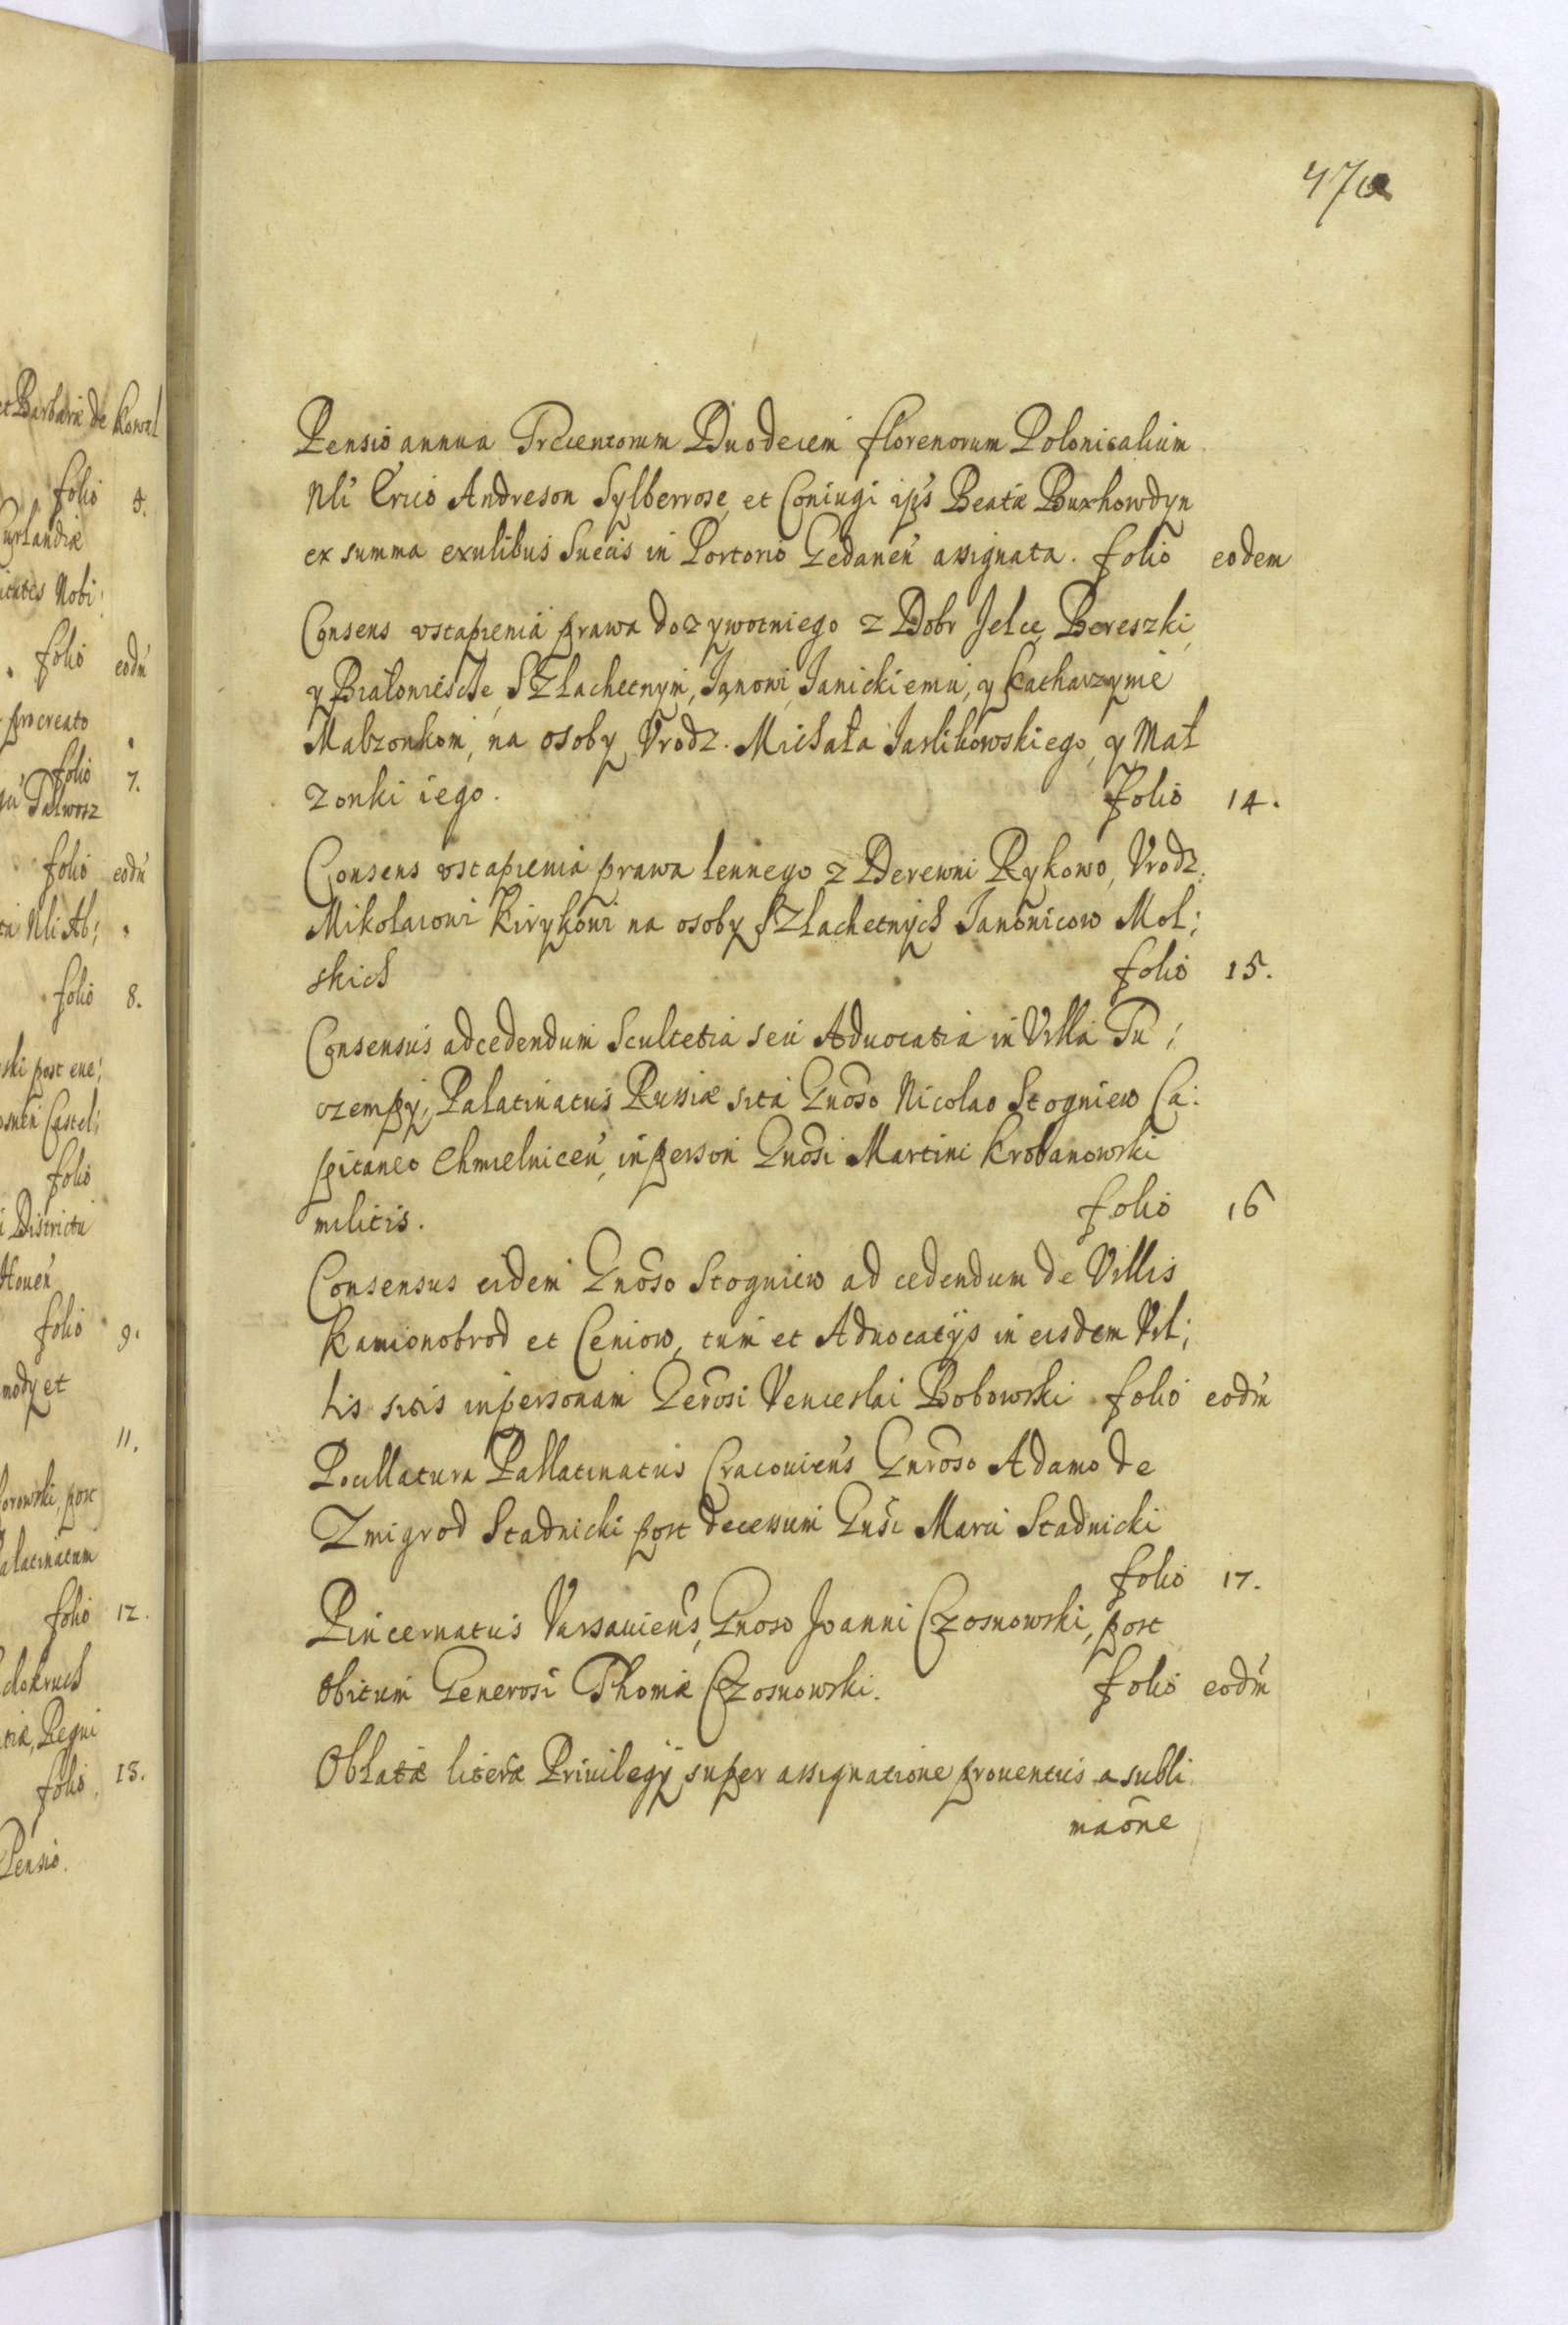 et Barbaræ de Kowal
folio
Curlandiæ
Nobi:
folio eodm̃
procreato
folio 7.
Talwosz
folio eodm̃
Nli Ab;
folio 8.
ski post
Castel;
folio
Districtu
folio 9.
et
11.
post
Palatinatum
folio 12.
Regni
folio 13.
Pensio.
47
Pensio annua Trecentorum Duodecem florenorum Polonicalium
Nli Erico Andreson Sylberrose, et Coniugi ips Beatæ Buxhowdyn
ex summa exulibus Suecis in Portorio Gedanen̄ assignata. folio eodem
Consens vstąpienia prawa dozywotniego z Dobr Jelce Bereszki
y Białomieście, SZlachetnym, Janowi Janickiemu, y Katharzynie
Małzonkom, na osoby Vrodz. Michała Jarlikowskiego, y Mał
zonki iego. folio 14.
Consens vstąpienia prawa lennego z Derewni Rykowo, Vrodz.
Mikołaiowi Kirykowi na osoby SZlachetnych Janowicow Mol;
skich folio 15.
Consensus ad cedendum Scultetia seu Aduocatia in Villa Tu;
rzempy, Palatinatus Russiæ sita Gnoso Nicolao Stogniew Ca:
pitaneo Chmielnicen̄, in person Gnosi Martini Krobanowski
militis. folio 16
Consensus eidem Gnoso Stogniew ad cedendum de Villis
Kamionobrod et Ceniow, tum et Aduocatijs in eisdem Vil;
lis sitis in personam Gerosi Venceslai Bobowski folio eodm̃
Pocillatura Pallatinatus Cracouiens Gnroso Adamo de
Zmigrod Stadnicki post decessum Gnsi Marci Stadnicki
folio 17.
Pincernatus Varsauiens, Gnoso Joanni CZosnowski, post
obitum Generosi Thomæ CZosnowski. folio eodm̃
Oblatæ literæ Priuilegij super assignatione prouentus a subli
maōne